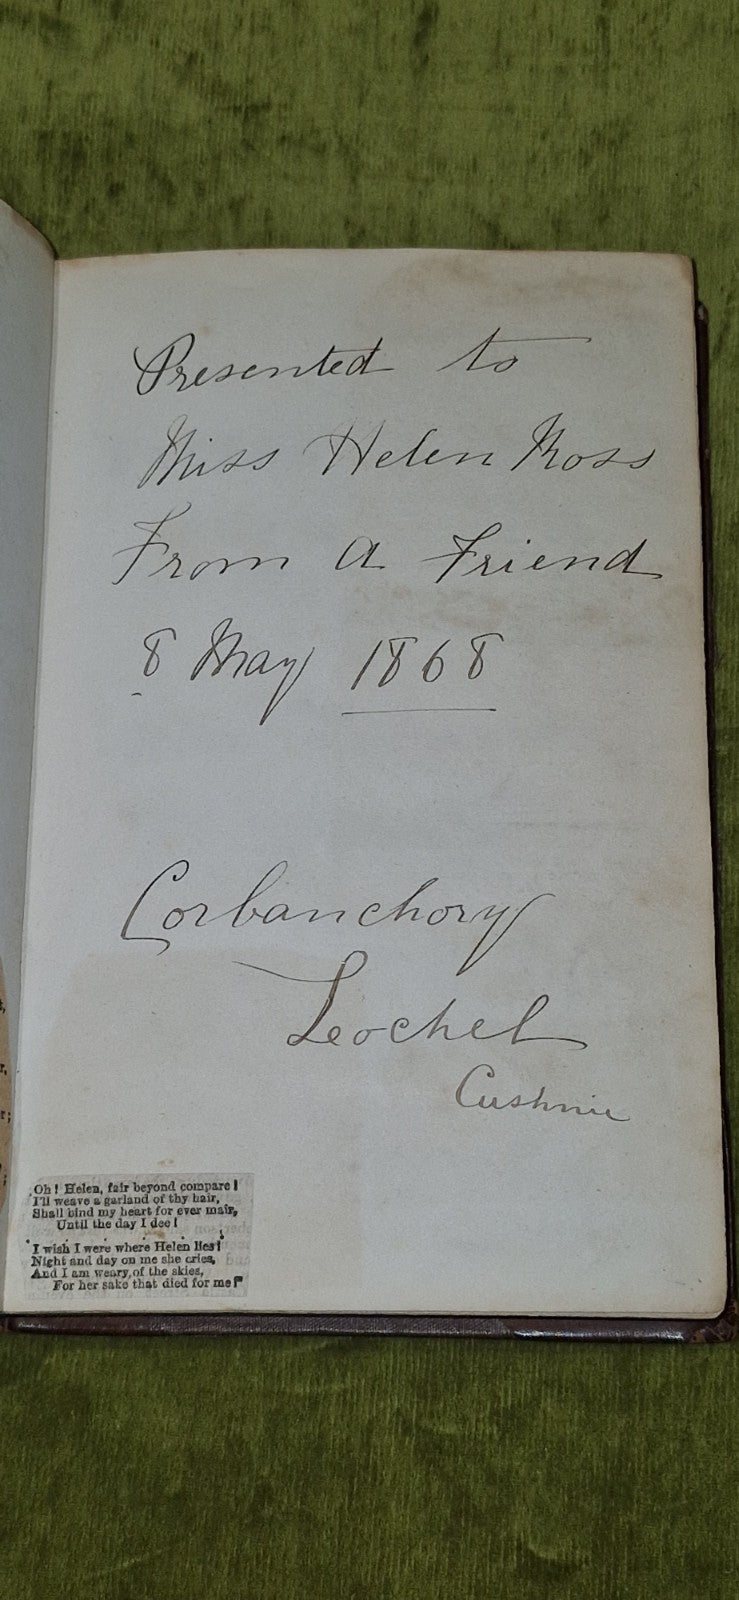 Presented to
Miss Helen Ross
From a Friend
8 May 1868
Corbanchory
Leochel
Cushnie
Oh! Helen, fair beyond compare!
I'll weave a garland of thy hair,
Shall bind my heart for ever mair,
Until the day I dee!
"I wish I were where Helen lies!
Night and day on me she cries,
And I am weary of the skies,
For her sake that died for me!"